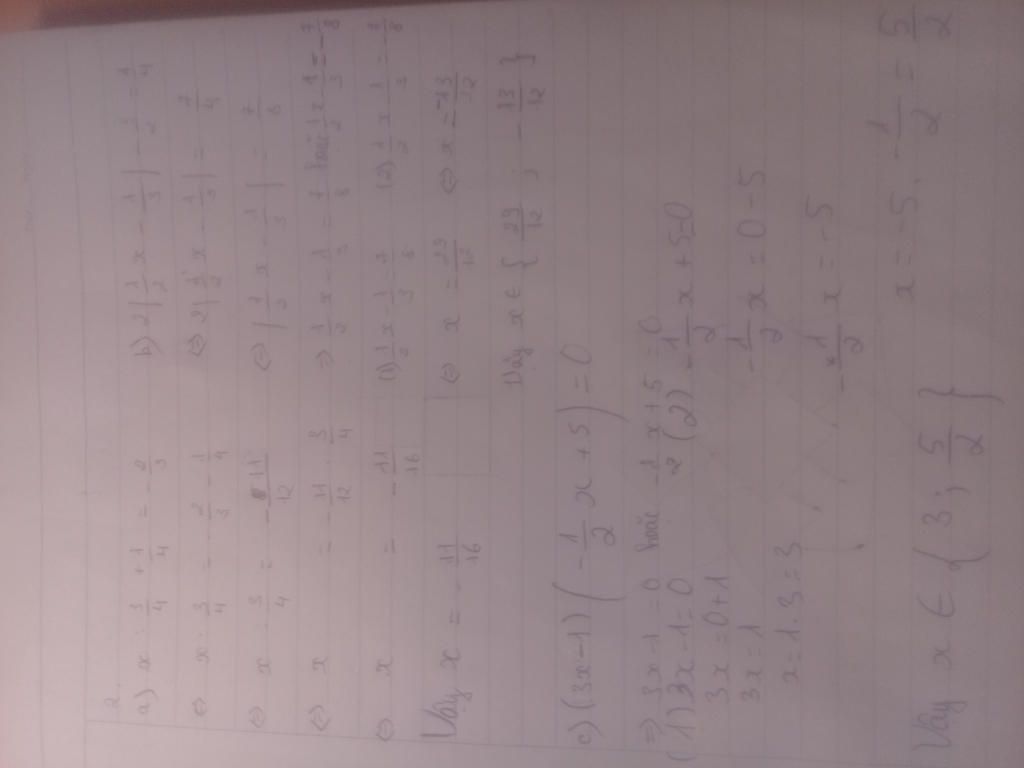 2.
a) x : 3/4 + 1/4 = - 2/3
⇔ x : 3/4 = - 2/3 - 1/4
⇔ x : 3/4 = - 11/12
⇔ x = - 11/12 . 3/4
⇔ x = - 11/16
Vậy x = - 11/16
b) 2|1/2 x - 1/3| - 3/2 = 1/4
⇔ 2|1/2 x - 1/3| = 7/4
⇔ |1/2 x - 1/3| = 7/8
⇒ 1/2 x - 1/3 = 7/8 hoặc 1/2 x - 1/3 = - 7/8
(1) 1/2 x - 1/3 = 7/8 (2) 1/2 x - 1/3 = - 7/8
⇔ x = 29/12 ⇔ x = - 13/12
Vậy x ∈ { 29/12 ; - 13/12 }
c) (3x-1) (- 1/2 x + 5) = 0
⇒ 3x - 1 = 0 hoặc - 1/2 x + 5 = 0
(1) 3x - 1 = 0
3x = 0 + 1
3x = 1
x = 1 . 3 = 3
(2) - 1/2 x + 5 = 0
- 1/2 x = 0 - 5
- 1/2 x = - 5
x = - 5 . - 1/2 = 5/2
Vậy x ∈ { 3 ; 5/2 }